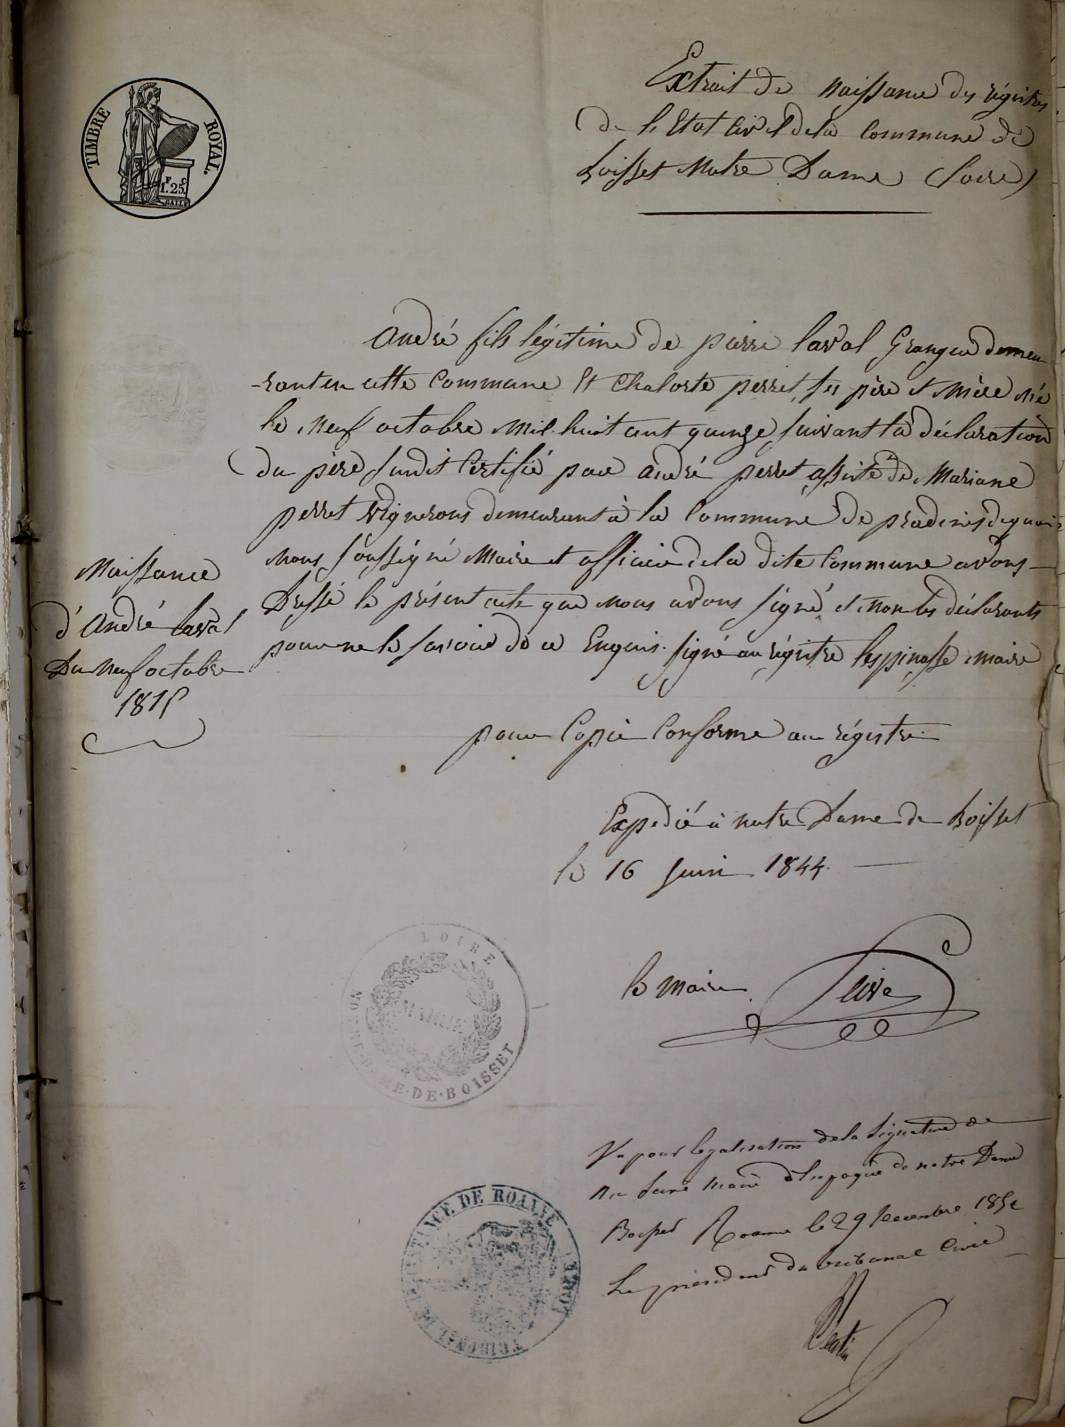 TIMBRE ROYAL.
1F. 25C.
Extrait de naissance des régistres
de l'Etat Civil de la Commune de
Boisset Notre Dame (Loire)
André fils légitime de pierre laval Granger demeu
-rant en cette Commune Et Charlotte perret, ses père et mère né
le Neuf octobre mil huit cent quinze suivant la déclaration
du père susdit Certifié par andré perret assisté de Mariane
perret Vignerons demeurants à la Commune de pradines de quoi
nous soussigné Maire et officier de la dite Commune avons
Dressé le présent acte que nous avons signé et non les déclarants
pour ne le savoir de ce Enquis. signé au régistre lespinasse maire
Naissance
d'André laval
Du neuf octobre
1815
pour Copie Conforme au régistre
Expedié à notre Dame de Boisset
le 16 juin 1844.
le maire
LOIRE
MAIRIE
NOTRE-DAME-DE-BOISSET
Vu pour légalisation de la signature de
Mr maire à l'epoque de notre Dame
Boisset Roanne le 29 Décembre 1852
Le président du tribunal Civil
TRIBUNAL DE 1RE INSTANCE DE ROANNE LOIRE